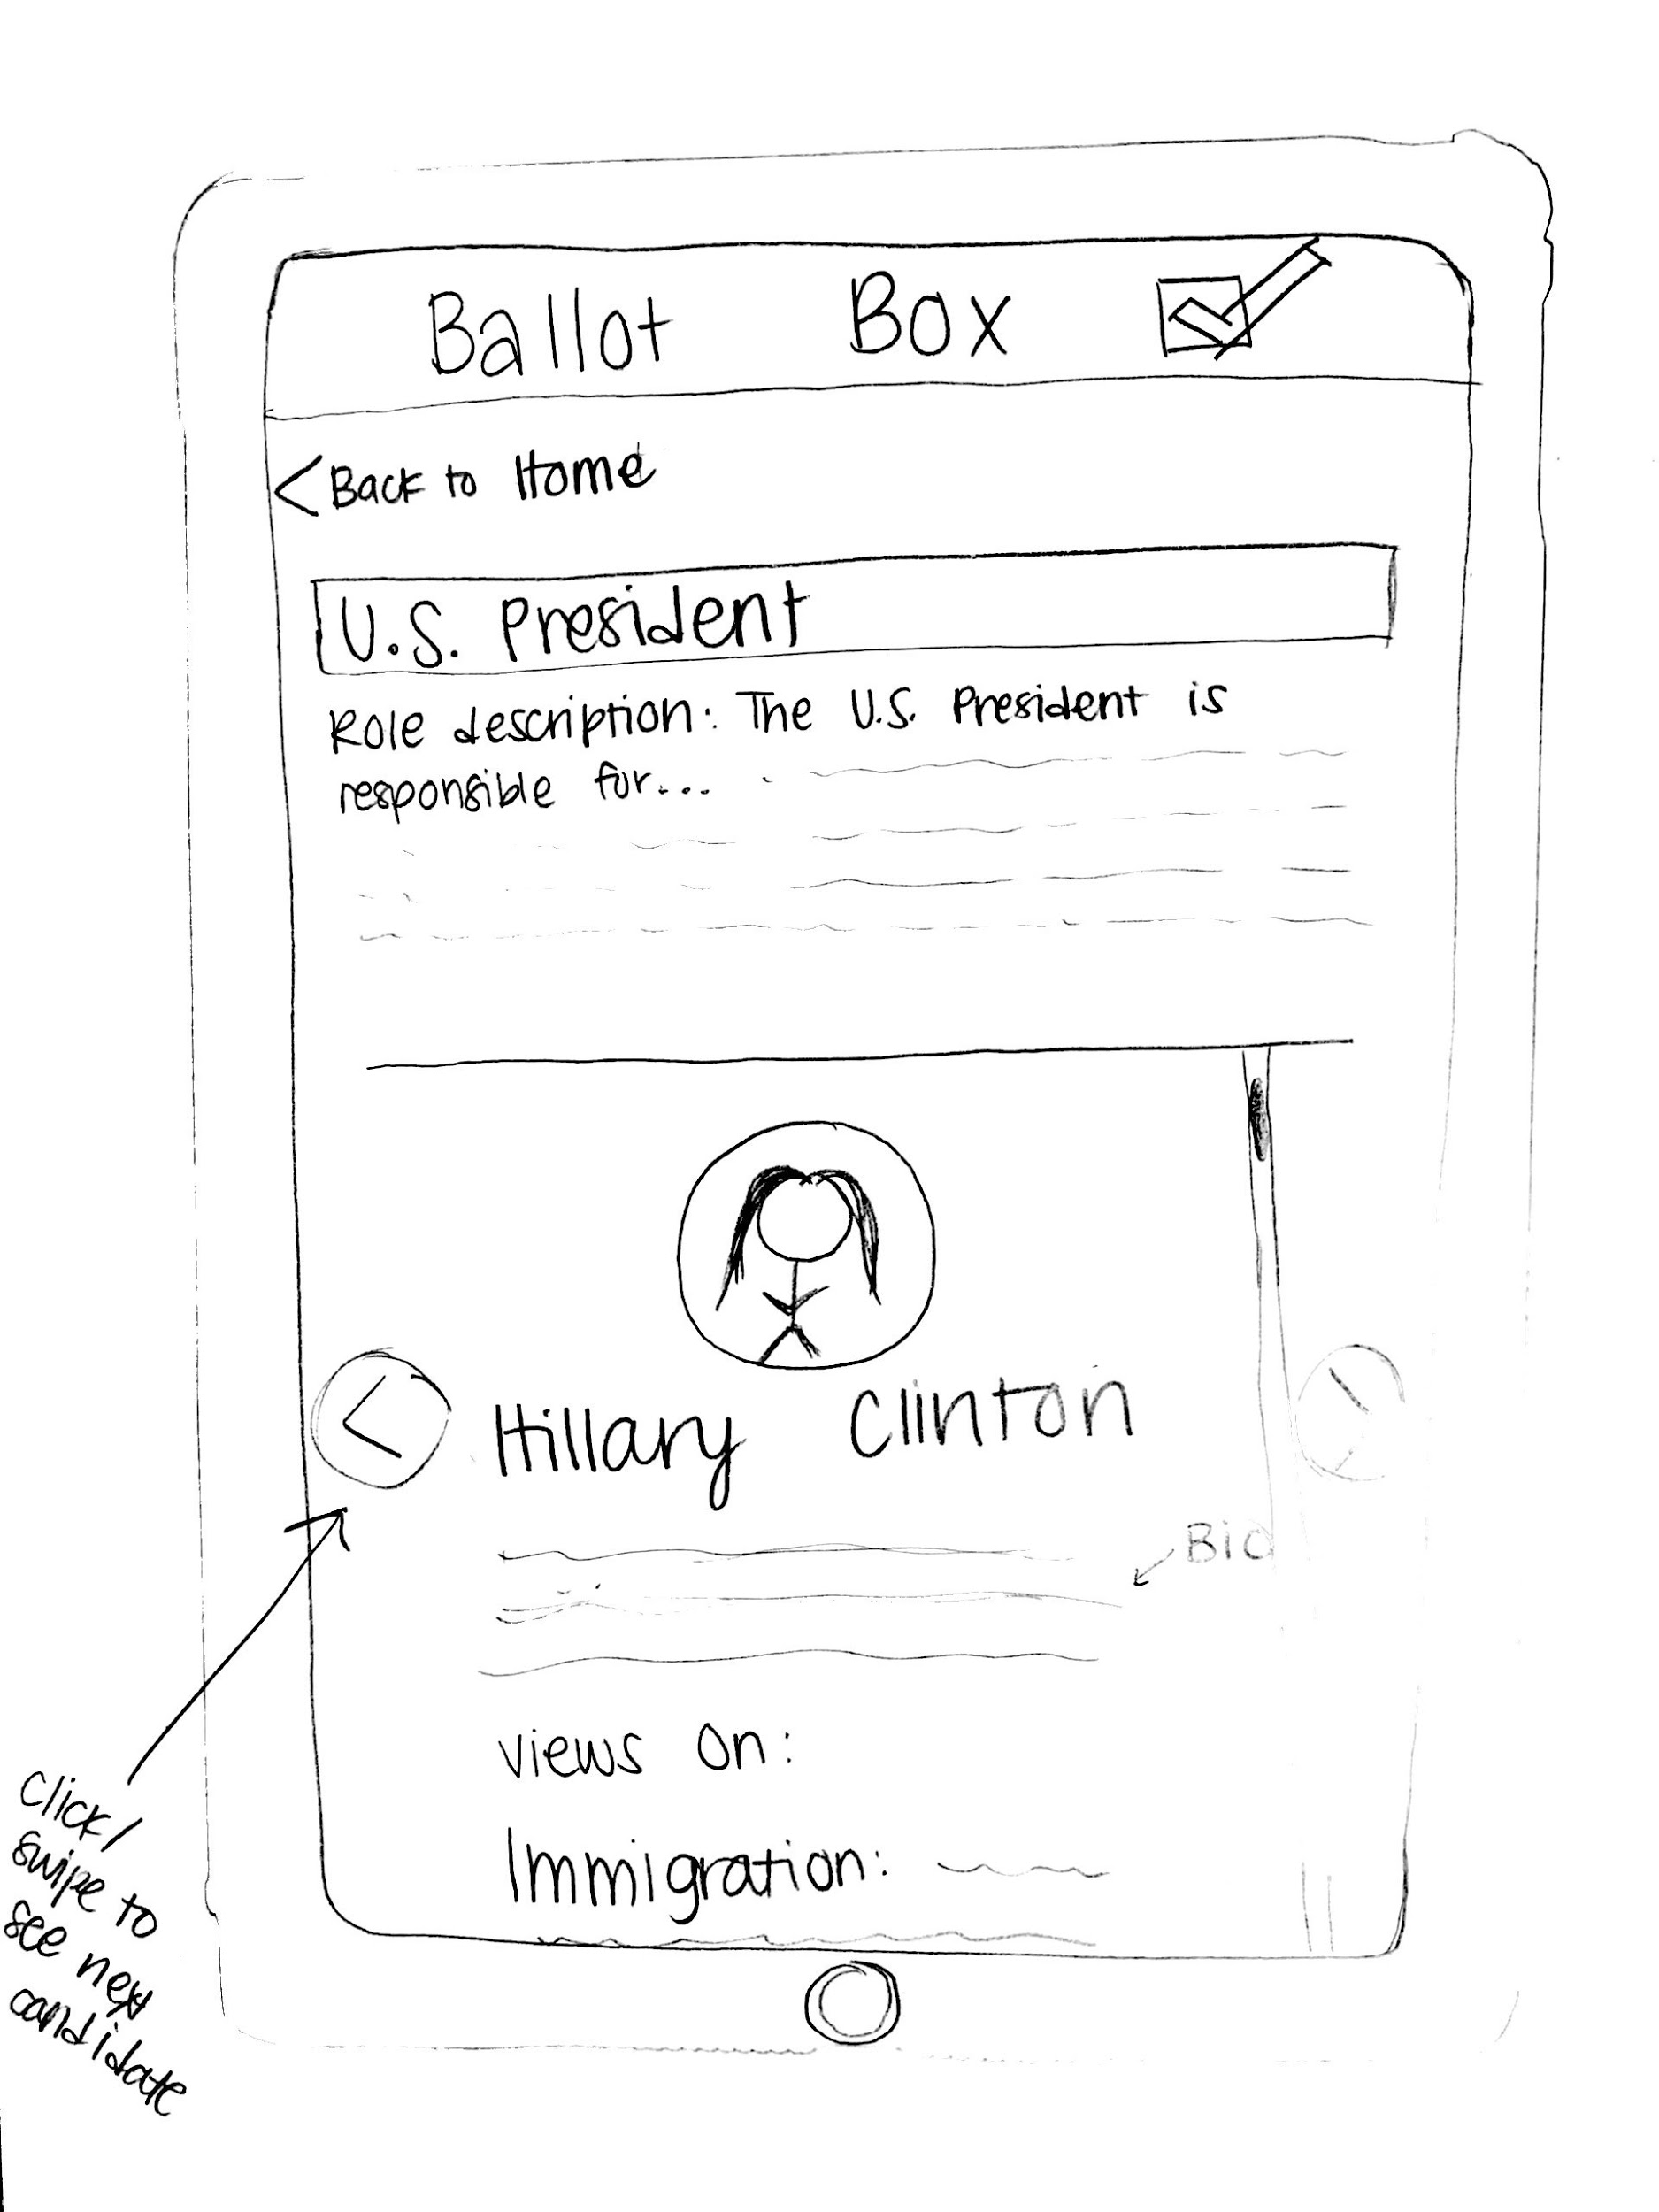 Ballot Box
< Back to Home
U.S. President
Role description: The U.S. President is
responsible for...
Hillary Clinton
Bio
Views on:
Immigration:
Click/
swipe to
see new
candidate